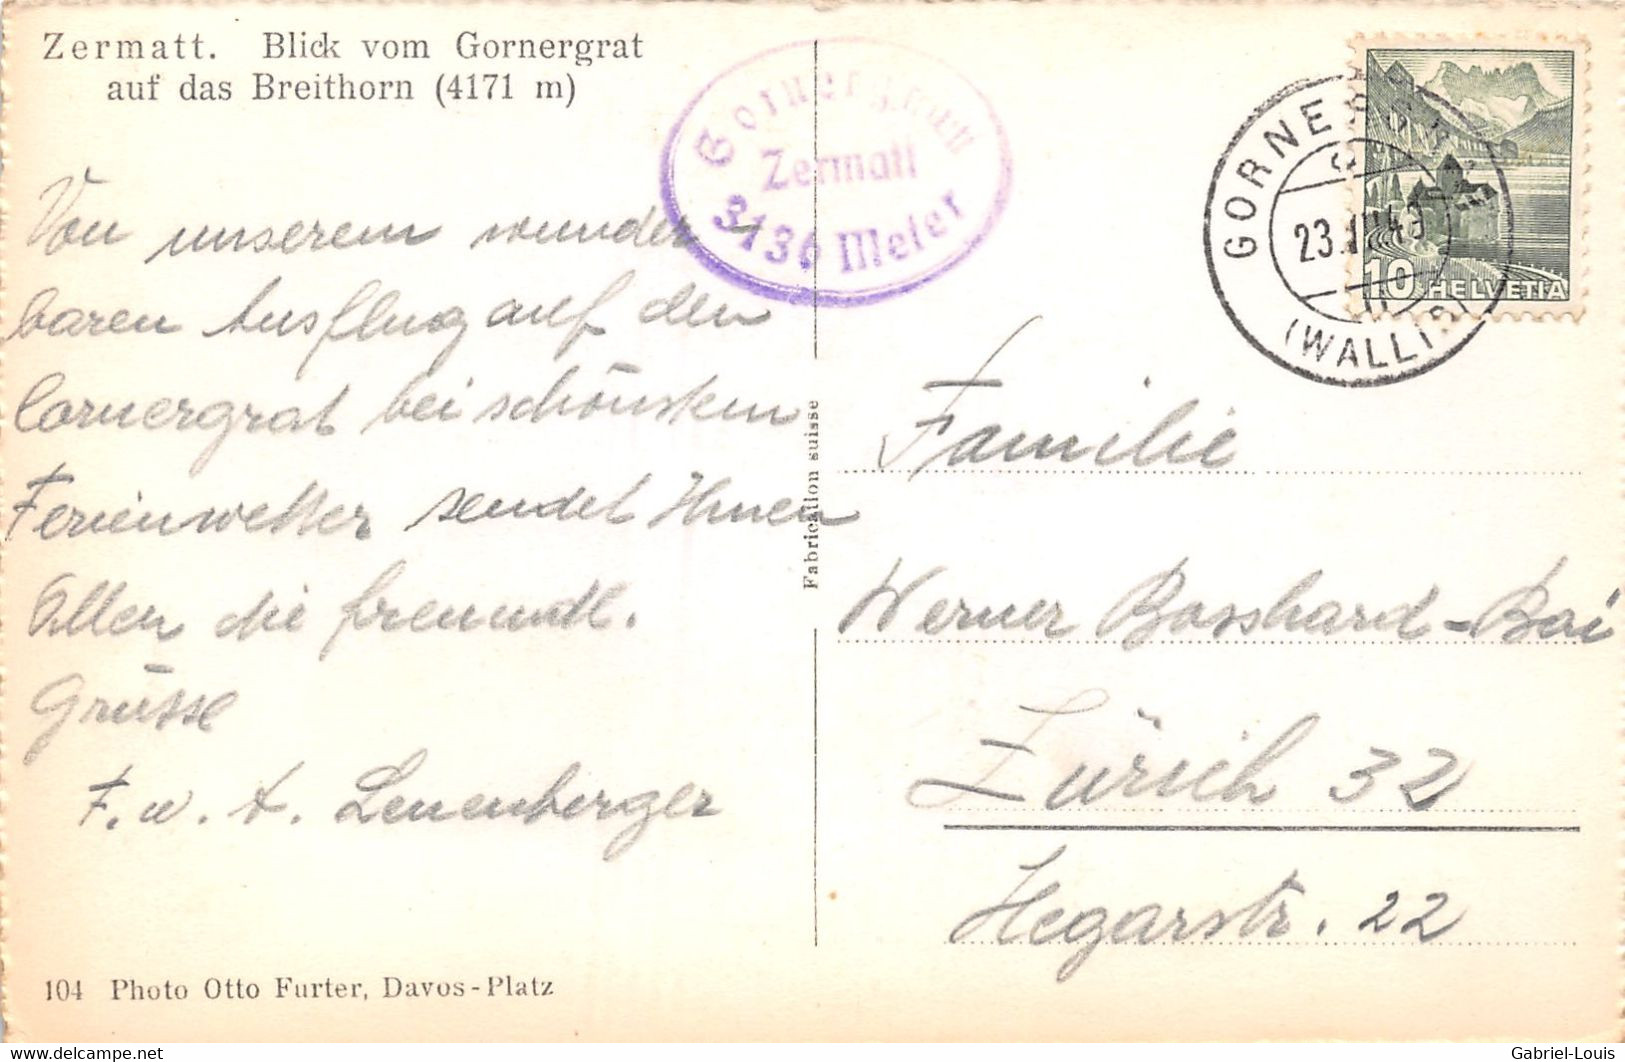 Zermatt. Blick vom Gornergrat
auf das Breithorn (4171 m)
Gornergratt
Zermatt
3136 Meter
GORNERGRAT
23.
(WALLIS)
10 HELVETIA
Von unserem wunder
baren Ausflug auf den
Gornergrat bei schönstem
Ferienwetter sendet Ihnen
Allen die freundl.
Grüsse
F. u. A. Leuenberger
Fabrication suisse
Familie
Werner Bosshard-Boi
Zürich 32
Hegarstr. 22
104 Photo Otto Furter, Davos-Platz
www.delcampe.net
Gabriel-Louis